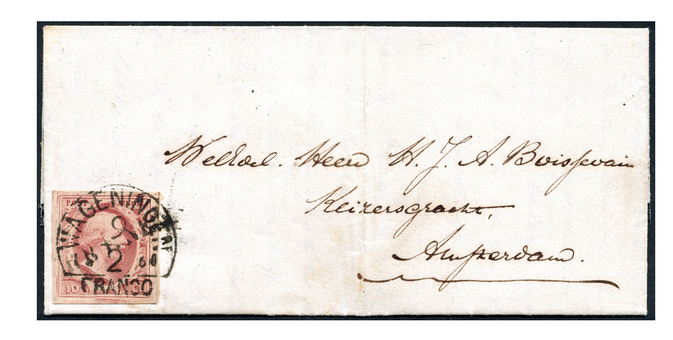 Weled. Heer H. J. A. Boissevain
Keizersgracht,
Amsterdam.
WAGENINGEN
9
2
FRANCO
10